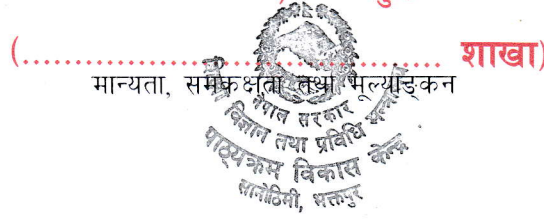 (.......................................................... शाखा)
मान्यता, समकक्षता तथा मूल्याङ्कन
नेपाल सरकार
विज्ञान तथा प्रविधि
पाठ्यक्रम विकास केन्द्र
सानोठिमी, भक्तपुर